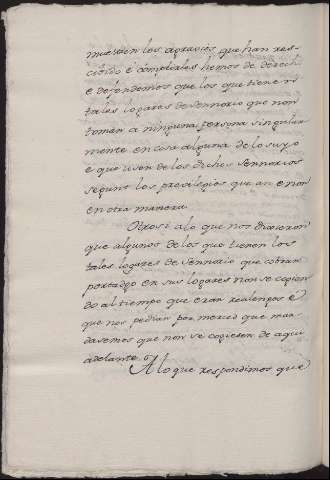 muestren los agravios que han res-
cibido é complirles hemos de derecho
é defendemos que los que tienen
tales logares de sennorio que non
tomen a ninguna persona singular-
mente en cosa alguna de lo suyo
e que usen de los dichos sennorios
segunt los previlegios que an e non
en otra manera.
Otrosi a lo que nos dixieron
que algunos de los que tienen los
tales logares de sennorio que cobran
portadgo en sus logares non se cogien-
do al tiempo que eran realengos é
que nos pedian por merced que man-
dasemos que non se cogiesen de aqui
adelante.
A lo que respondimos que